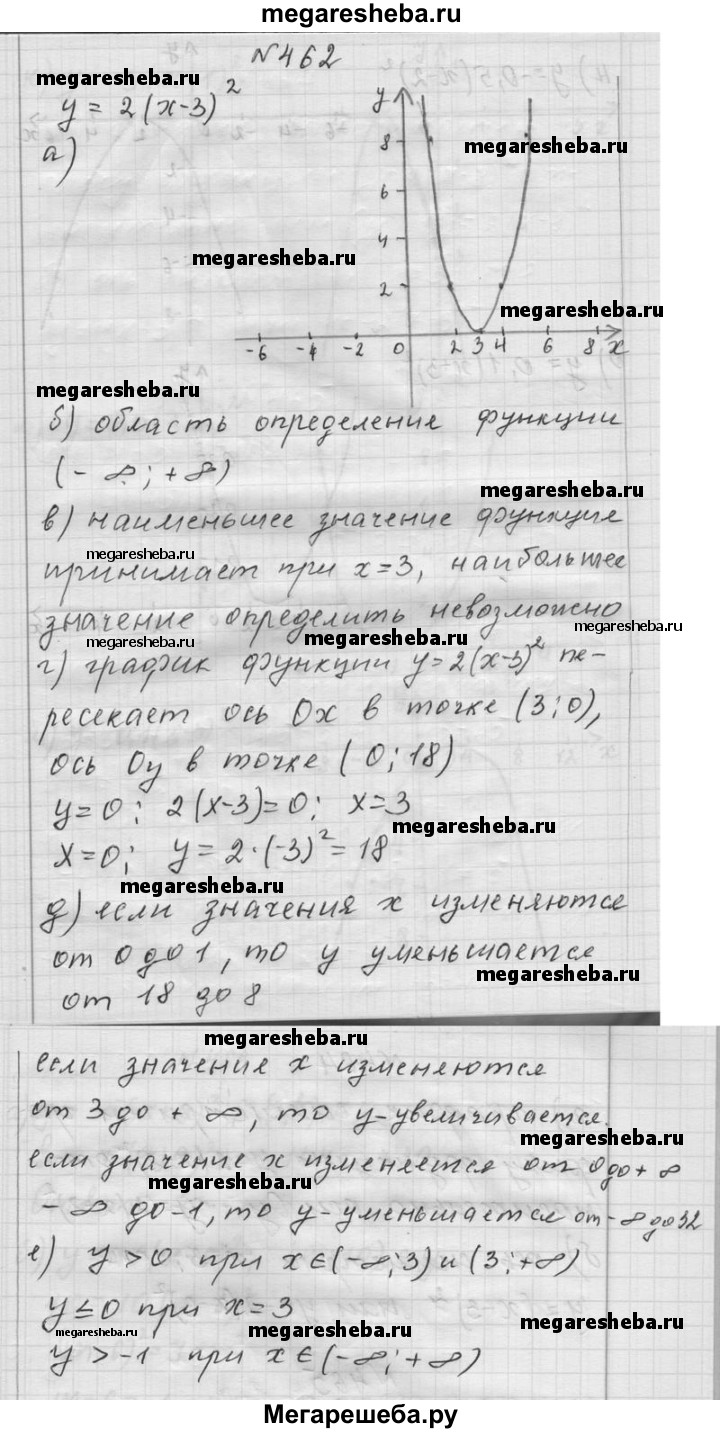 megaresheba.ru
N462
megaresheba.ru
y = 2(x-3)²
а)
y
8
6
4
2
-6 -4 -2 0 2 3 4 6 8 x
megaresheba.ru
megaresheba.ru
megaresheba.ru
megaresheba.ru
б) область определение функции
(-∞; +∞)
megaresheba.ru
в) наименьшее значение функция
megaresheba.ru
принимает при x=3, наибольшее
значение определить невозможно
megaresheba.ru megaresheba.ru megaresheba.ru
г) график функции y=2(x-3)² пе-
ресекает ось Ox в точке (3;0),
ось Oy в точке (0;18)
y=0; 2(x-3)=0; x=3
megaresheba.ru
x=0; y=2·(-3)²=18
megaresheba.ru
д) если значения x изменяются
от 0 до 1, то y уменьшается
megaresheba.ru
от 18 до 8
megaresheba.ru
если значение x изменяются
от 3 до +∞, то y-увеличивается.
megaresheba.ru
если значение x изменяется от 0 до +∞
megaresheba.ru
-∞ до -1, то y-уменьшается от -∞ до 32
е) y>0 при x∈(-∞;3) и (3;+∞)
y≤0 при x=3
megaresheba.ru megaresheba.ru megaresheba.ru
y>-1 при x∈(-∞;+∞)
Мегарешеба.ру